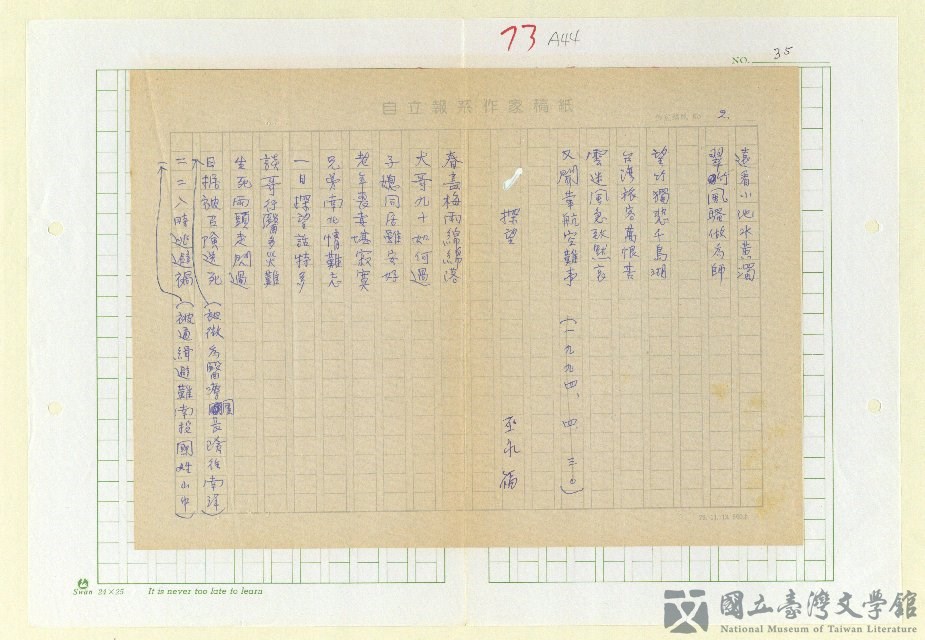 73 A44
NO. 35
自立報系作家稿紙
2.
遠看小池水黃濁
翠竹風騷做為師
望竹獨悲千島湖
台灣旅客萬恨去
雲迷風急致默哀
又聞華航空難事 (一九九四、四、三〇)
探望 巫永福
春喜梅雨綿綿落
大哥九十如何過
子媳同居雖安好
老年喪妻堪寂寞
兄弟南北情難忘
一日探望話特多
談哥行醫多災難
生死兩頭走閃過
日據被召險送死 (被徵為醫療團長隨往南洋)
二二八時逃避禍 (被通緝避難南投國姓山中)
Swan 24×25 It is never too late to learn
國立臺灣文學館
National Museum of Taiwan Literature